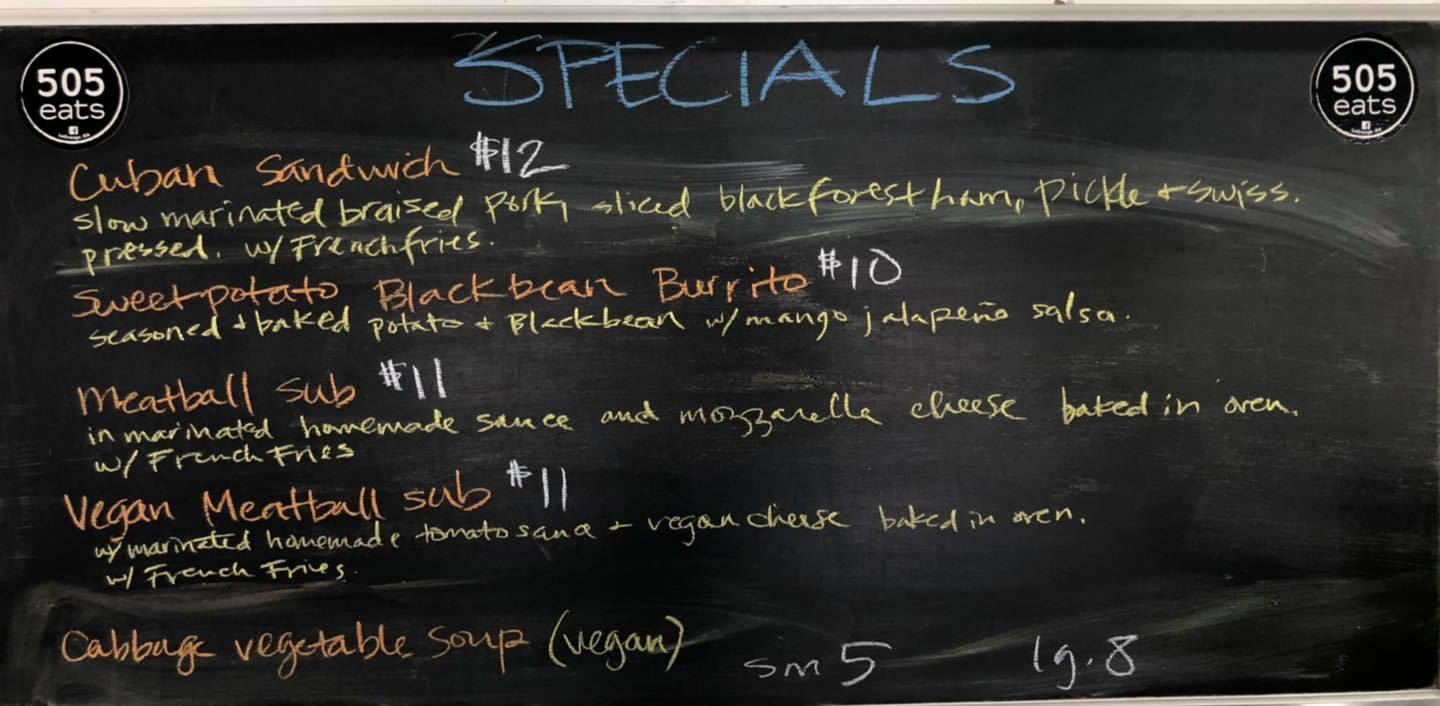 505
eats
SPECIALS
505
eats
Cuban Sandwich $12
slow marinated braised pork, sliced blackforest ham, pickle + swiss.
pressed. w/ French fries.
Sweet potato Blackbean Burrito $10
seasoned + baked potato + Blackbean w/ mango jalapeño salsa.
Meatball sub $11
in marinated homemade sauce and mozzarella cheese baked in oven.
w/ French Fries
Vegan Meatball sub $11
w/ marinated homemade tomato sauce + vegan cheese baked in oven.
w/ French Fries.
Cabbage vegetable soup (vegan) sm 5 lg. 8